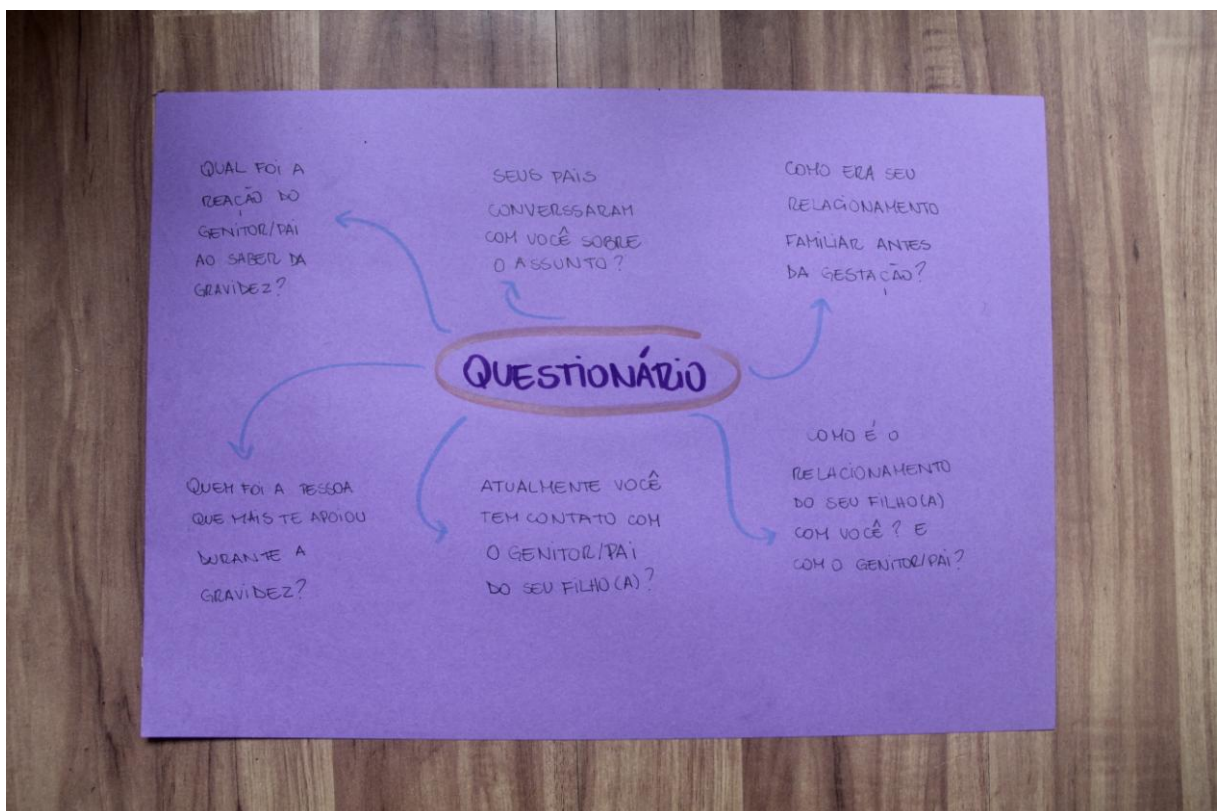 QUAL FOI A
REAÇÃO DO
GENITOR/PAI
AO SABER DA
GRAVIDEZ?
SEUS PAIS
CONVERSSARAM
COM VOCÊ SOBRE
O ASSUNTO?
COMO ERA SEU
RELACIONAMENTO
FAMILIAR ANTES
DA GESTAÇÃO?
QUESTIONÁRIO
QUEM FOI A PESSOA
QUE MAIS TE APOIOU
DURANTE A
GRAVIDEZ?
ATUALMENTE VOCÊ
TEM CONTATO COM
O GENITOR/PAI
DO SEU FILHO(A)?
COMO É O
RELACIONAMENTO
DO SEU FILHO(A)
COM VOCÊ? E
COM O GENITOR/PAI?